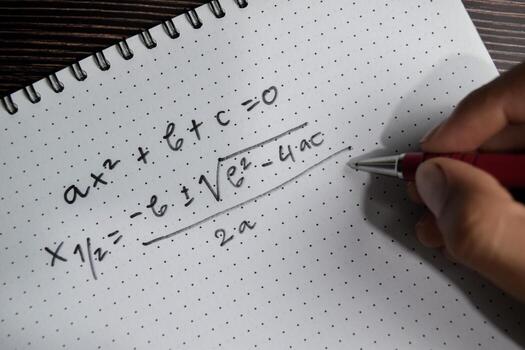 ax² + b + c = 0
x 1/2 = -b ± √b² - 4ac
2a